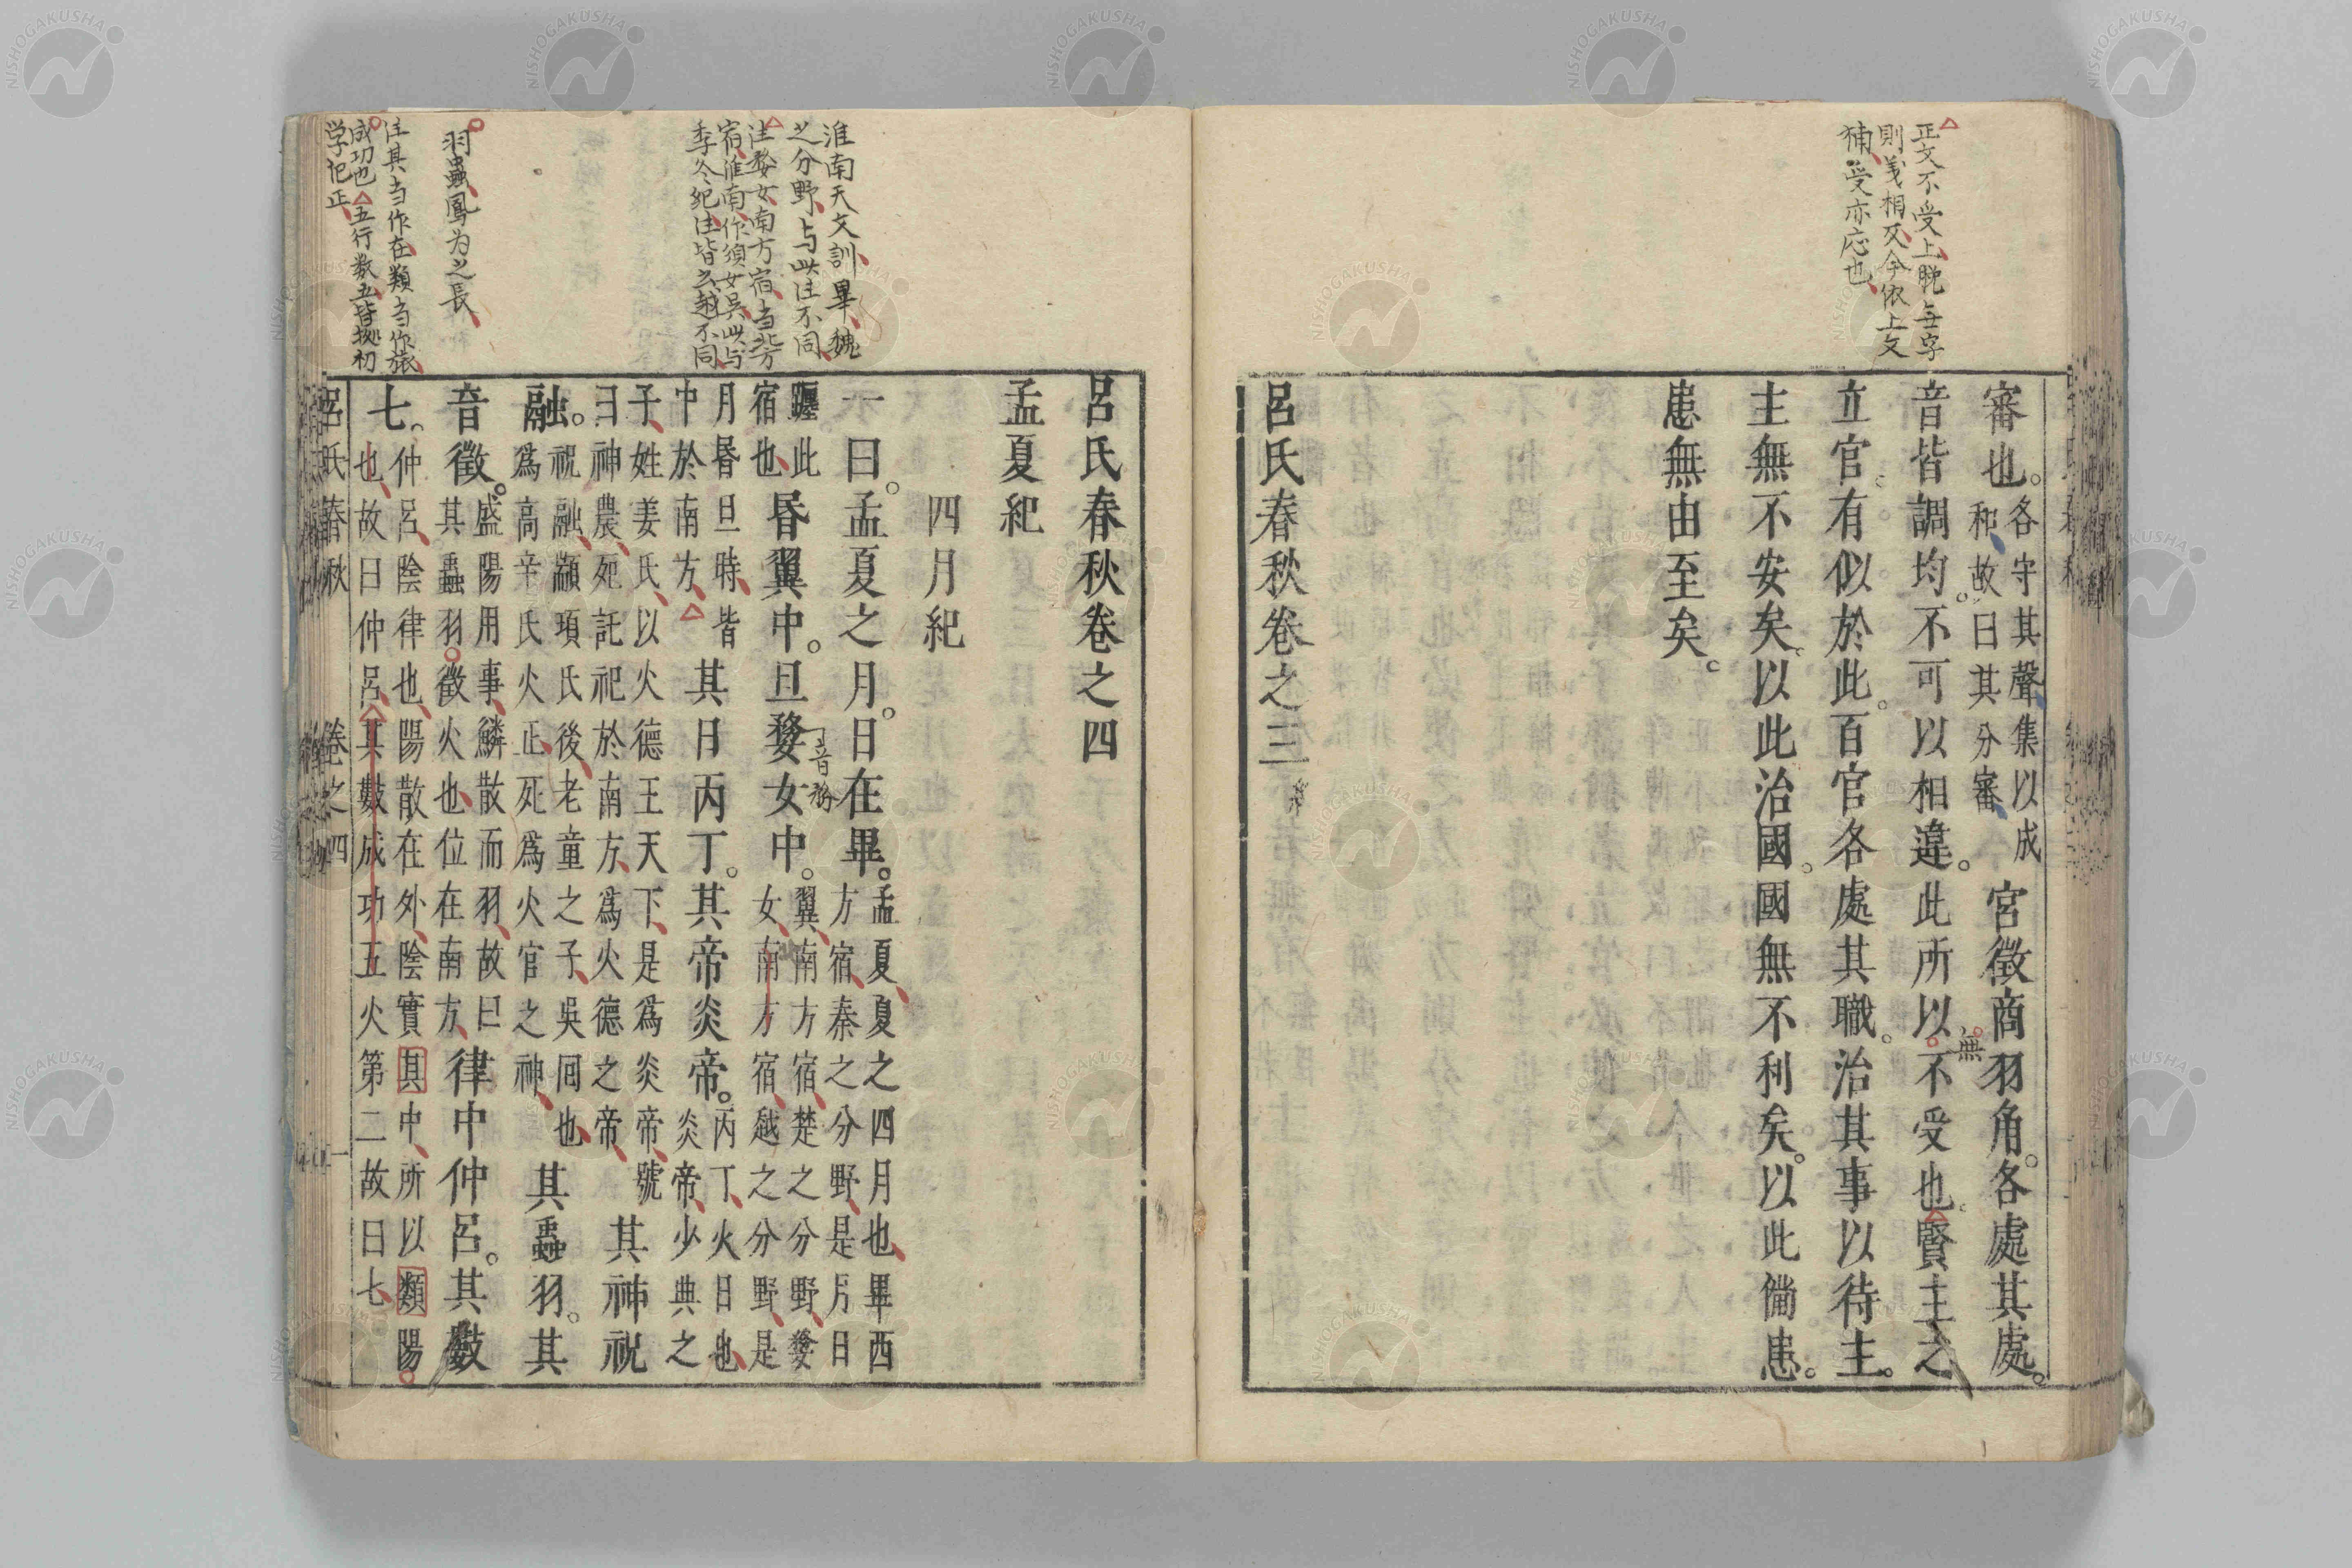 正文不受上脱無字
則義相反今依上文
補受亦応也
審也。各守其聲集以成
和故曰其分審
宮徵商羽角。各處其處。
音皆調均。不可以相違。此所以不受也。賢主之
無
立官。有似於此。百官各處其職。治其事以待主。
主無不安矣。以此治國。國無不利矣。以此備患。
患無由至矣。
呂氏春秋卷之三
淮南天文訓畢魏
之分野与此注不同
注婺女南方宿当北方
宿淮南作須女呉此与
季冬紀注皆云越不同
羽蟲鳳为之長
注其当作在類当作旅
成功也五行数五皆拠初
学記正
呂氏春秋卷之四
孟夏紀
四月紀
一曰。孟夏之月。日在畢。
孟夏夏之四月也畢西
方宿秦之分野是月日
躔此
宿也
昏翼中。旦婺女中。
音務
翼南方宿楚之分野婺
女南方宿越之分野是
月昏旦時皆
中於南方
其日丙丁。其帝炎帝。
丙丁火日也
炎帝少典之
子姓姜氏以火德王天下是為炎帝號
曰神農死託祀於南方為火德之帝
其神祝
融。
祝融顓頊氏後老童之子吳回也
為高辛氏火正死為火官之神
其蟲羽。其
音徵。
盛陽用事鱗散而羽故曰
其蟲羽徵火也位在南方
律中仲呂。其數
七。
仲呂陰律也陽散在外陰實其中所以類陽
也故曰仲呂其數成功五火第二故曰七
呂氏春秋
卷之四
一
NISHOGAKUSHA